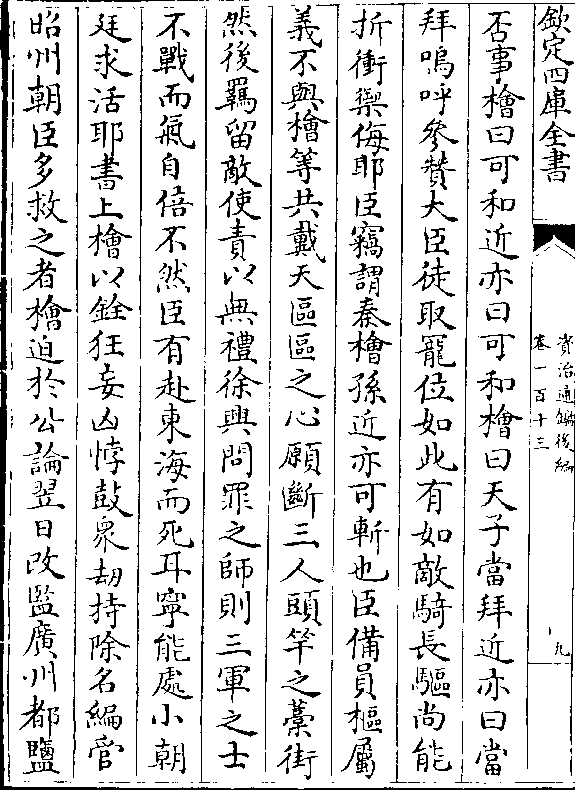 欽定四庫全書
資治通鑑後編
卷一百十三
九
否事檜曰可和近亦曰可和檜曰天子當拜近亦曰當
拜嗚呼參贊大臣徒取寵位如此有如敵騎長驅尚能
折衝禦侮耶臣竊謂秦檜孫近亦可斬也臣備員樞屬
義不與檜等共戴天區區之心願斷三人頭竿之藁街
然後羈留敵使責以無禮徐興問罪之師則三軍之士
不戰而氣自倍不然臣有赴東海而死耳寧能處小朝
廷求活耶書上檜以銓狂妄凶悖鼓衆劫持除名編管
昭州朝臣多救之者檜迫於公論翌日改監廣州都鹽